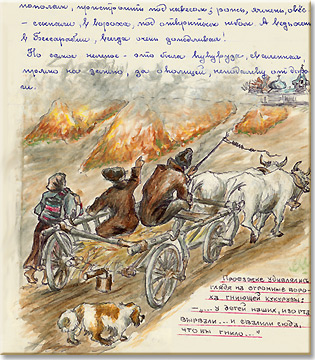 пополам, простоять под навесом; рожь, ячмень, овёс
- ссыпали, в вороха, под открытым небом. А ведь осень
в Бессарабии, всегда очень дождливая!
Но самое нелепое - это была кукуруза, сваленная,
прямо на землю, за околицей, неподалёку от доро-
ги.
Проезжие удивлялись
глядя на огромные воро-
ха гниющей кукурузы:
-„... У детей наших, изо рта
вырвали... и свалили сюда,
что бы гнило..."